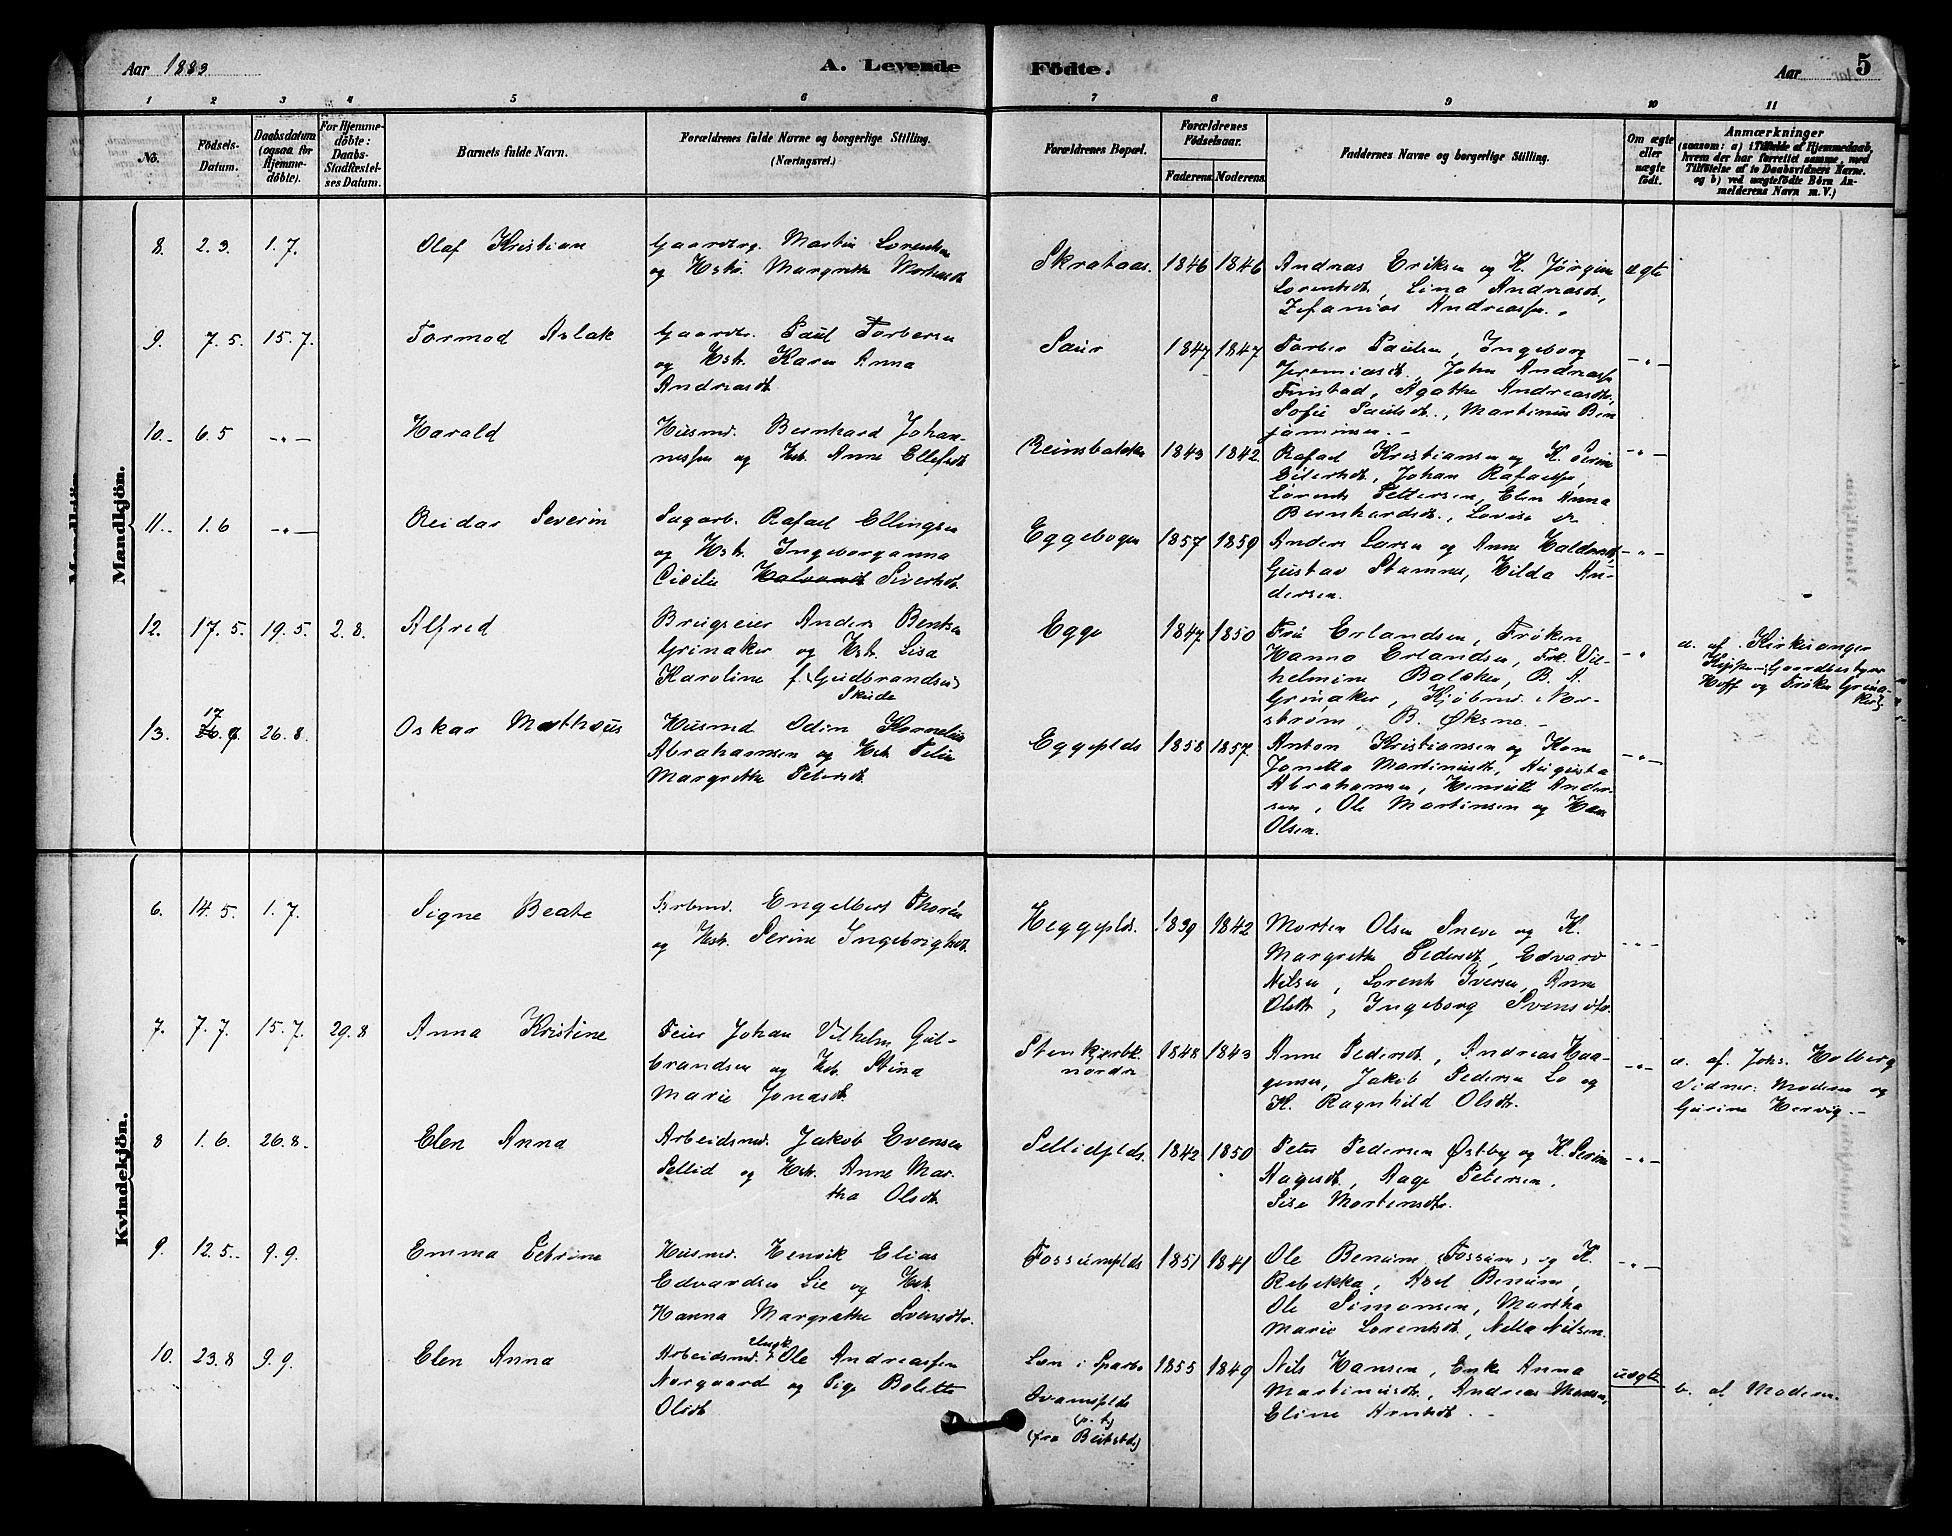 Aar 1883
A. Levende Födte.
Aar
5
1 2 3 4 5 6 7 8 9 10 11
No.
Födsels-Datum.
Daabsdatum (ogsaa for Hjemmedöbte).
For Hjemmedöbte: Daabs-Stadfestelses Datum.
Barnets fulde Navn.
Forældrenes fulde Navne og borgerlige Stilling. (Næringsvei.)
Forældrenes Bopæl.
Forældrenes Födselsaar.
Faderens. Moderens.
Faddernes Navne og borgerlige Stilling.
Om ægte eller uægte födt.
Anmærkninger
(saasom: a) i Tilfælde af Hjemmedaab, hvem der har forrettet samme, med Tilföielse af to Daabsvidners Navne. og b) ved uægtefödte Börn Anmelderens Navn m. V.)
Mandkjön.
8. 2.3. 1.7. Olaf Kristian
Gaardbrg. Martin Lorentsen
og Hstr. Margrethe
Skrataas. 1846 1846
Andreas Eriksen og K. Jørgine
Lorentsdt, Lina Andreasdt,
Zefanias Andreassen.
ægte
9. 7.5. 15.7. Tormod Aslak
Gaardbr. Paul Torbersen
og Hstr. Karen Anna
Andreasdt.
Saur 1847 1847
Torber Paulsen, Ingeborg
Jeremiasdt, John Andreassen
Finstad, Agathe Andreasdtr,
Sofie Paulsdt., Martinus Ben
jaminsen.-
-"-
10.- 6.5 -"- Harald
Husmd. Bernhard Johan-
nessen og Hstr. Anne Ellefsdt
Reinsbakken 1843 1842
Rafael Kristiansen og K. Serine
Johan Rafaelsen,
Lorents Pettersen, Elen Anna
Bernhardsdt., Lovise do
-"-
11.- 1.6 -"- Reidar Severin
Sagarb. Rafael Ellingsen
og Hstr. Ingeborganna
Cicilie Siverhsdt.
Eggebogen 1857 1859
Anders Larsen og Anne
Gustav Stamnes, Hilda An-
dersen.
-"-
12. 17.5. 19.5. 2.8. Alfred
Brugseier Anders Bentsen
Grinaker og Hstr. Lisa
Karoline f. (Gudbrandsen)
Skude
Egge 1847 1850
Fru Erlandsen, Frøken
Hanna Erlandsen, Frk. Vil-
helmine Balcken, B. A.
Grinaker, Kjøbmd. Nor-
strøm, B. Øksne.-
-"
a. af. Kirkesanger
Kippe - (Gaardbestyrer
Hoff og Frøken Grina-
ker).
13. 17 26.8. Oskar Mathæus
Husmd Odin Kornelius
Abrahamsen og Hstr. Pelie
Margrethe Petersdt.
Eggeplds 1858 1857.
Anton Kristiansen og Kone
Jonetta Martinusdt, Augusta
Abrahamsen, Henriette Ander-
sen, Ole Martinsen og Hans
Olsen.
-"-
Kvindekjön.
6. 14.5. 1.7. Signe Beate
Arbmd. Engelbert Thorsen
og Hstr. Serine Ingebrigtsdt.
Heggeplds. 1839 1842
Morten Olsen Sneve og K.
Margrethe Pedersdt, Edvard
Nilsen, Lorents Iversen, Anne
Olsdt, Ingeborg Svensdtr.
-"-
7. 7.7. 15.7. 29.8 Anna Kristine
Feier Johan Vilhelm Gul-
brandsen og Hstr. Stina
Marie Jonasdt.
Stenkjærbk. 1848 1843
nordre
Anne Pedersdt, Andreas Haa-
gensen, Jakob Pedersen Lo og
K. Ragnhild Olsdt.
-"-
a. af. Johs. Holberg
Vidner: Moderen og
Gurine Hervig.-
8 1.6. 26.8. Elen Anna
Arbeidsmd. Jakob Evensen
Sellid og Hstr. Anne Mar-
tha Olsdt.
Sellidplds. 1842 1850
Peter Pedersen Østby og K. Serine
Aagesdt, Aage Petersen.
Lisa Mortensdt.
-"-
9. 12.5. 9.9. Emma Petrine
Husmd. Henrik Elias
Edvardsen Lie og Hstr.
Hanna Margrethe Svensdtr.
Fossumplds 1851 1841
Ole Benum (Fossum) og K.
Rebekka, Axel Benum,
Ole Simonsen, Martha
Marie Lorentsdt, Nella Nilsen.
-"-
10. 23.8 9.9. Elen Anna
Ungk
Arbeidsmd. Ole Andreassen
Norgaard og Pige Bolette
Olsdt
Løn i Sparbu 1855 1849
Ovamsplds
(p.t.)
(fra Beitstad)
Nils Hansen, Enke Anna
Martinusdt, Andreas Hansen,
Eline Arntsdt.-
uægte
b. af Moderen.